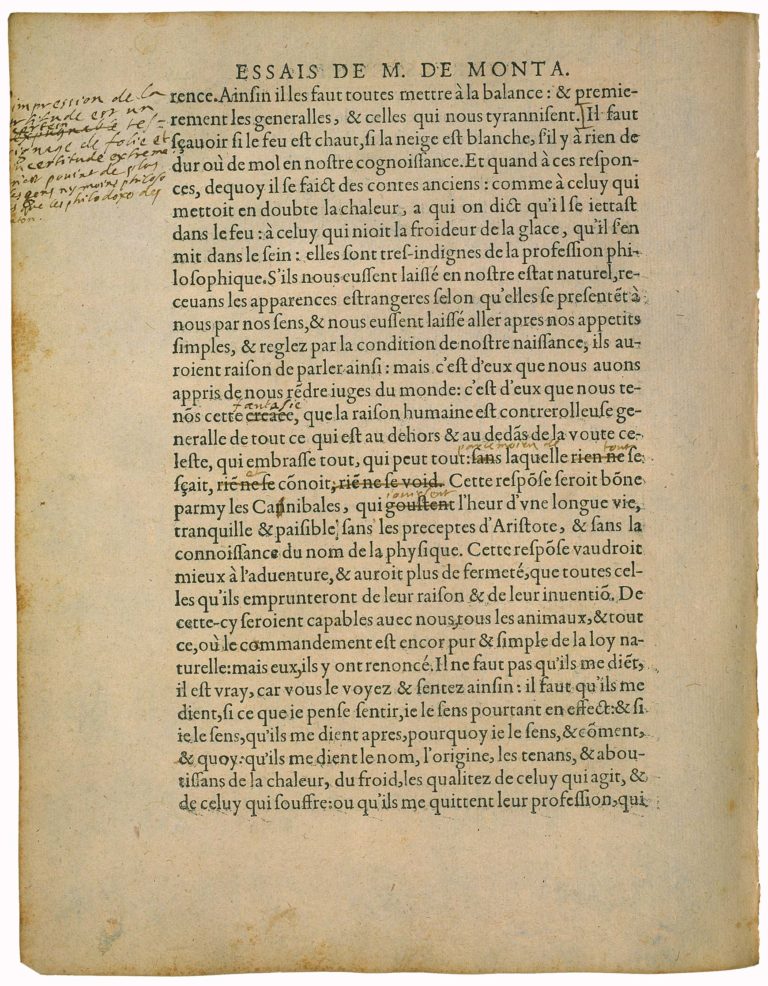 ESSAIS DE M. DE MONTA.
impression de la
certitude est un
certein tes-
moignage de folie et
d'incertitude extreme
et n'est pouint de plus
foles gens ny moins philoso
fes que les philodoxes de
Platon.
rence. Ainsin il les faut toutes mettre à la balance : & premie-
rement les generalles, & celles qui nous tyrannisent. [Il faut
sçauoir si le feu est chaut, si la neige est blanche, s'il y à rien de
dur où de mol en nostre cognoissance. Et quand à ces respon-
ces, dequoy il se faict des contes anciens : comme à celuy qui
mettoit en doubte la chaleur, a qui on dict qu'il se iettast
dans le feu : à celuy qui nioit la froideur de la glace, qu'il s'en
mit dans le sein : elles sont tres-indignes de la profession phi-
losophique. S'ils nous eussent laissé en nostre estat naturel, re-
ceuans les apparences estrangeres selon qu'elles se presentẽt à
nous par nos sens, & nous eussent laissé aller apres nos appetits
simples, & reglez par la condition de nostre naissance, ils au-
roient raison de parler ainsi : mais c'est d'eux que nous auons
appris de nous rẽdre iuges du monde : c'est d'eux que nous te-
fantasie
nõs cette creãce, que la raison humaine est contrerolleuse ge-
neralle de tout ce qui est au dehors & au dedãs de la voute ce-
par le moien de tout
leste, qui embrasse tout, qui peut tout : sans laquelle rien ne se
et
sçait, riẽ ne se cõnoit, riẽ ne se void. Cette respõse seroit bõne
iouissent
parmy les Cannibales, qui goustent l'heur d'vne longue vie,
tranquille & paisible, sans les preceptes d'Aristote, & sans la
connoissance du nom de la physique. Cette respõse vaudroit
mieux à l'aduenture, & auroit plus de fermeté, que toutes cel-
les qu'ils emprunteront de leur raison & de leur inuentiõ. De
cette-cy seroient capables auec nous, tous les animaux, & tout
ce, où le commandement est encor pur & simple de la loy na-
turelle : mais eux, ils y ont renoncé. Il ne faut pas qu'ils me diẽt,
il est vray, car vous le voyez & sentez ainsin : il faut qu'ils me
dient, si ce que ie pense sentir, ie le sens pourtant en effect : & si
ie le sens, qu'ils me dient apres, pourquoy ie le sens, & cõment,
& quoy : qu'ils me dient le nom, l'origine, les tenans, & abou-
tissans de la chaleur, du froid, les qualitez de celuy qui agit, &
de celuy qui souffre : ou qu'ils me quittent leur profession, qui